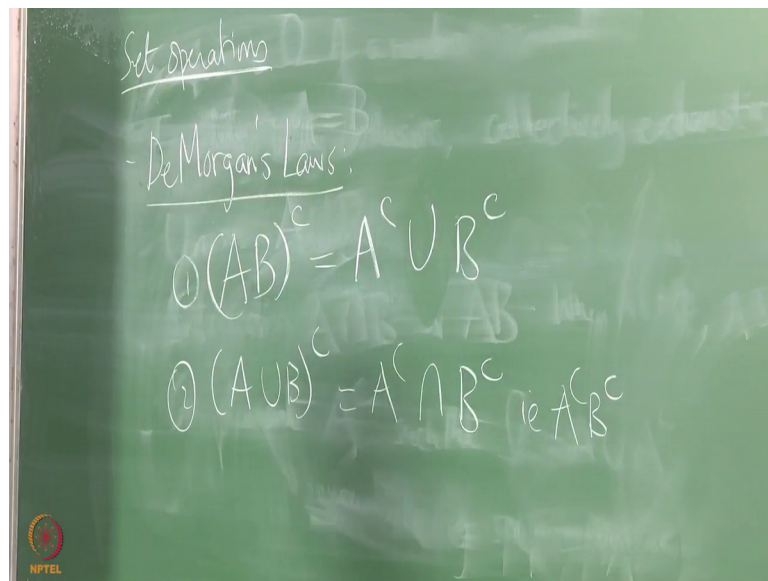 Set operations
- DeMorgan's Laws:
① (AB)^C = A^C ∪ B^C
② (A∪B)^C = A^C ∩ B^C ie A^C B^C
NPTEL